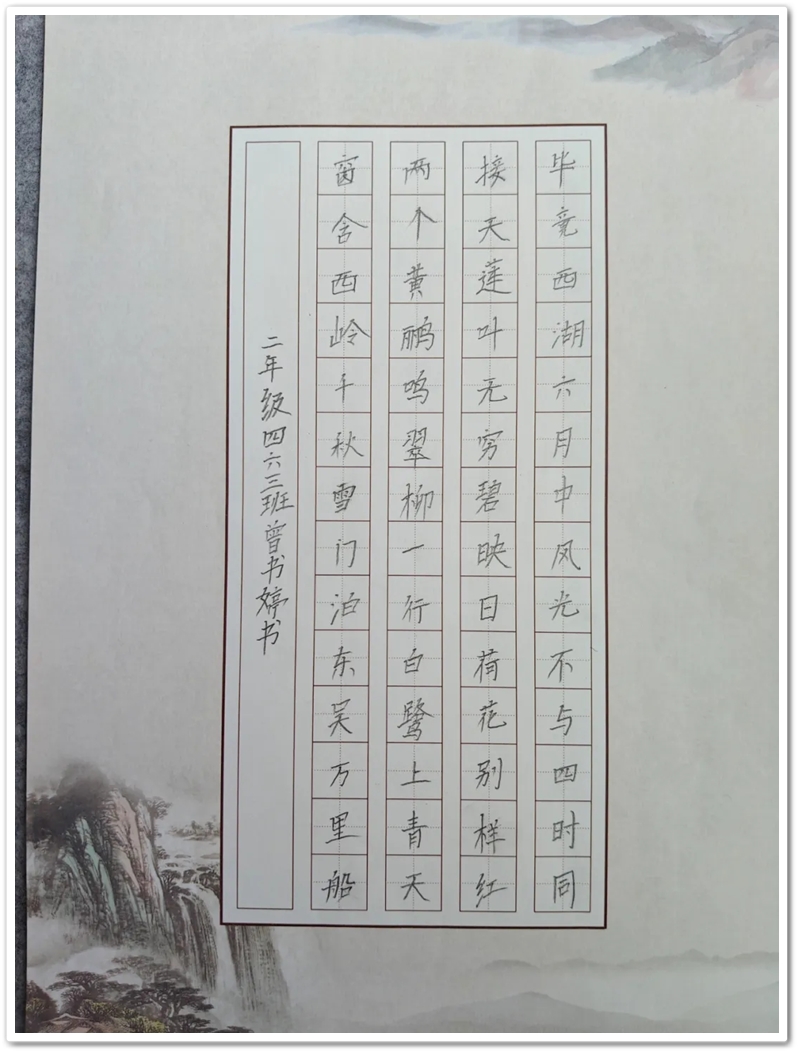 毕竟西湖六月中风光不与四时同
接天莲叶无穷碧映日荷花别样红
两个黄鹂鸣翠柳一行白鹭上青天
窗含西岭千秋雪门泊东吴万里船
二年级四六三班曾书婷书